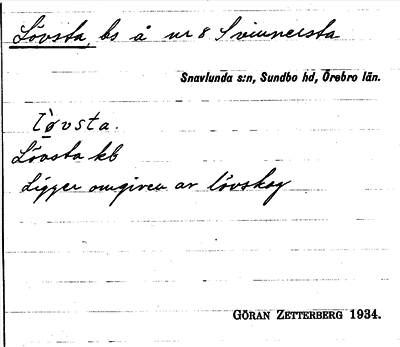 Lövsta, bs å nr 8 Svinnersta
Snavlunda s:n, Sundbo hd, Örebro län.
l`øvsta.
Lövsta kb
Ligger omgiven av lövskog
GÖRAN ZETTERBERG 1934.